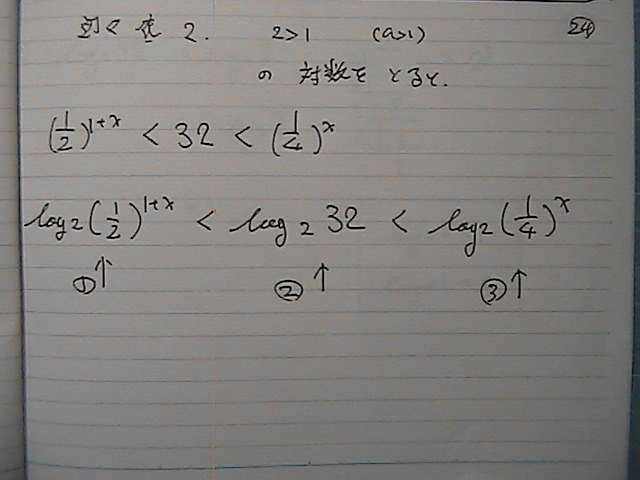 引く底 2. 2>1 (a>1) 24
の 対数を とると.
(1/2)^{1+x} < 32 < (1/4)^x
log₂(1/2)^{1+x} < log₂ 32 < log₂(1/4)^x
①↑ ②↑ ③↑